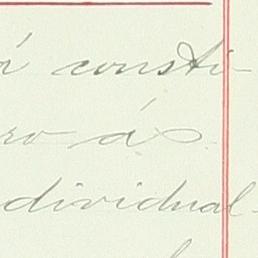 á consti-
ro ás
dividual-